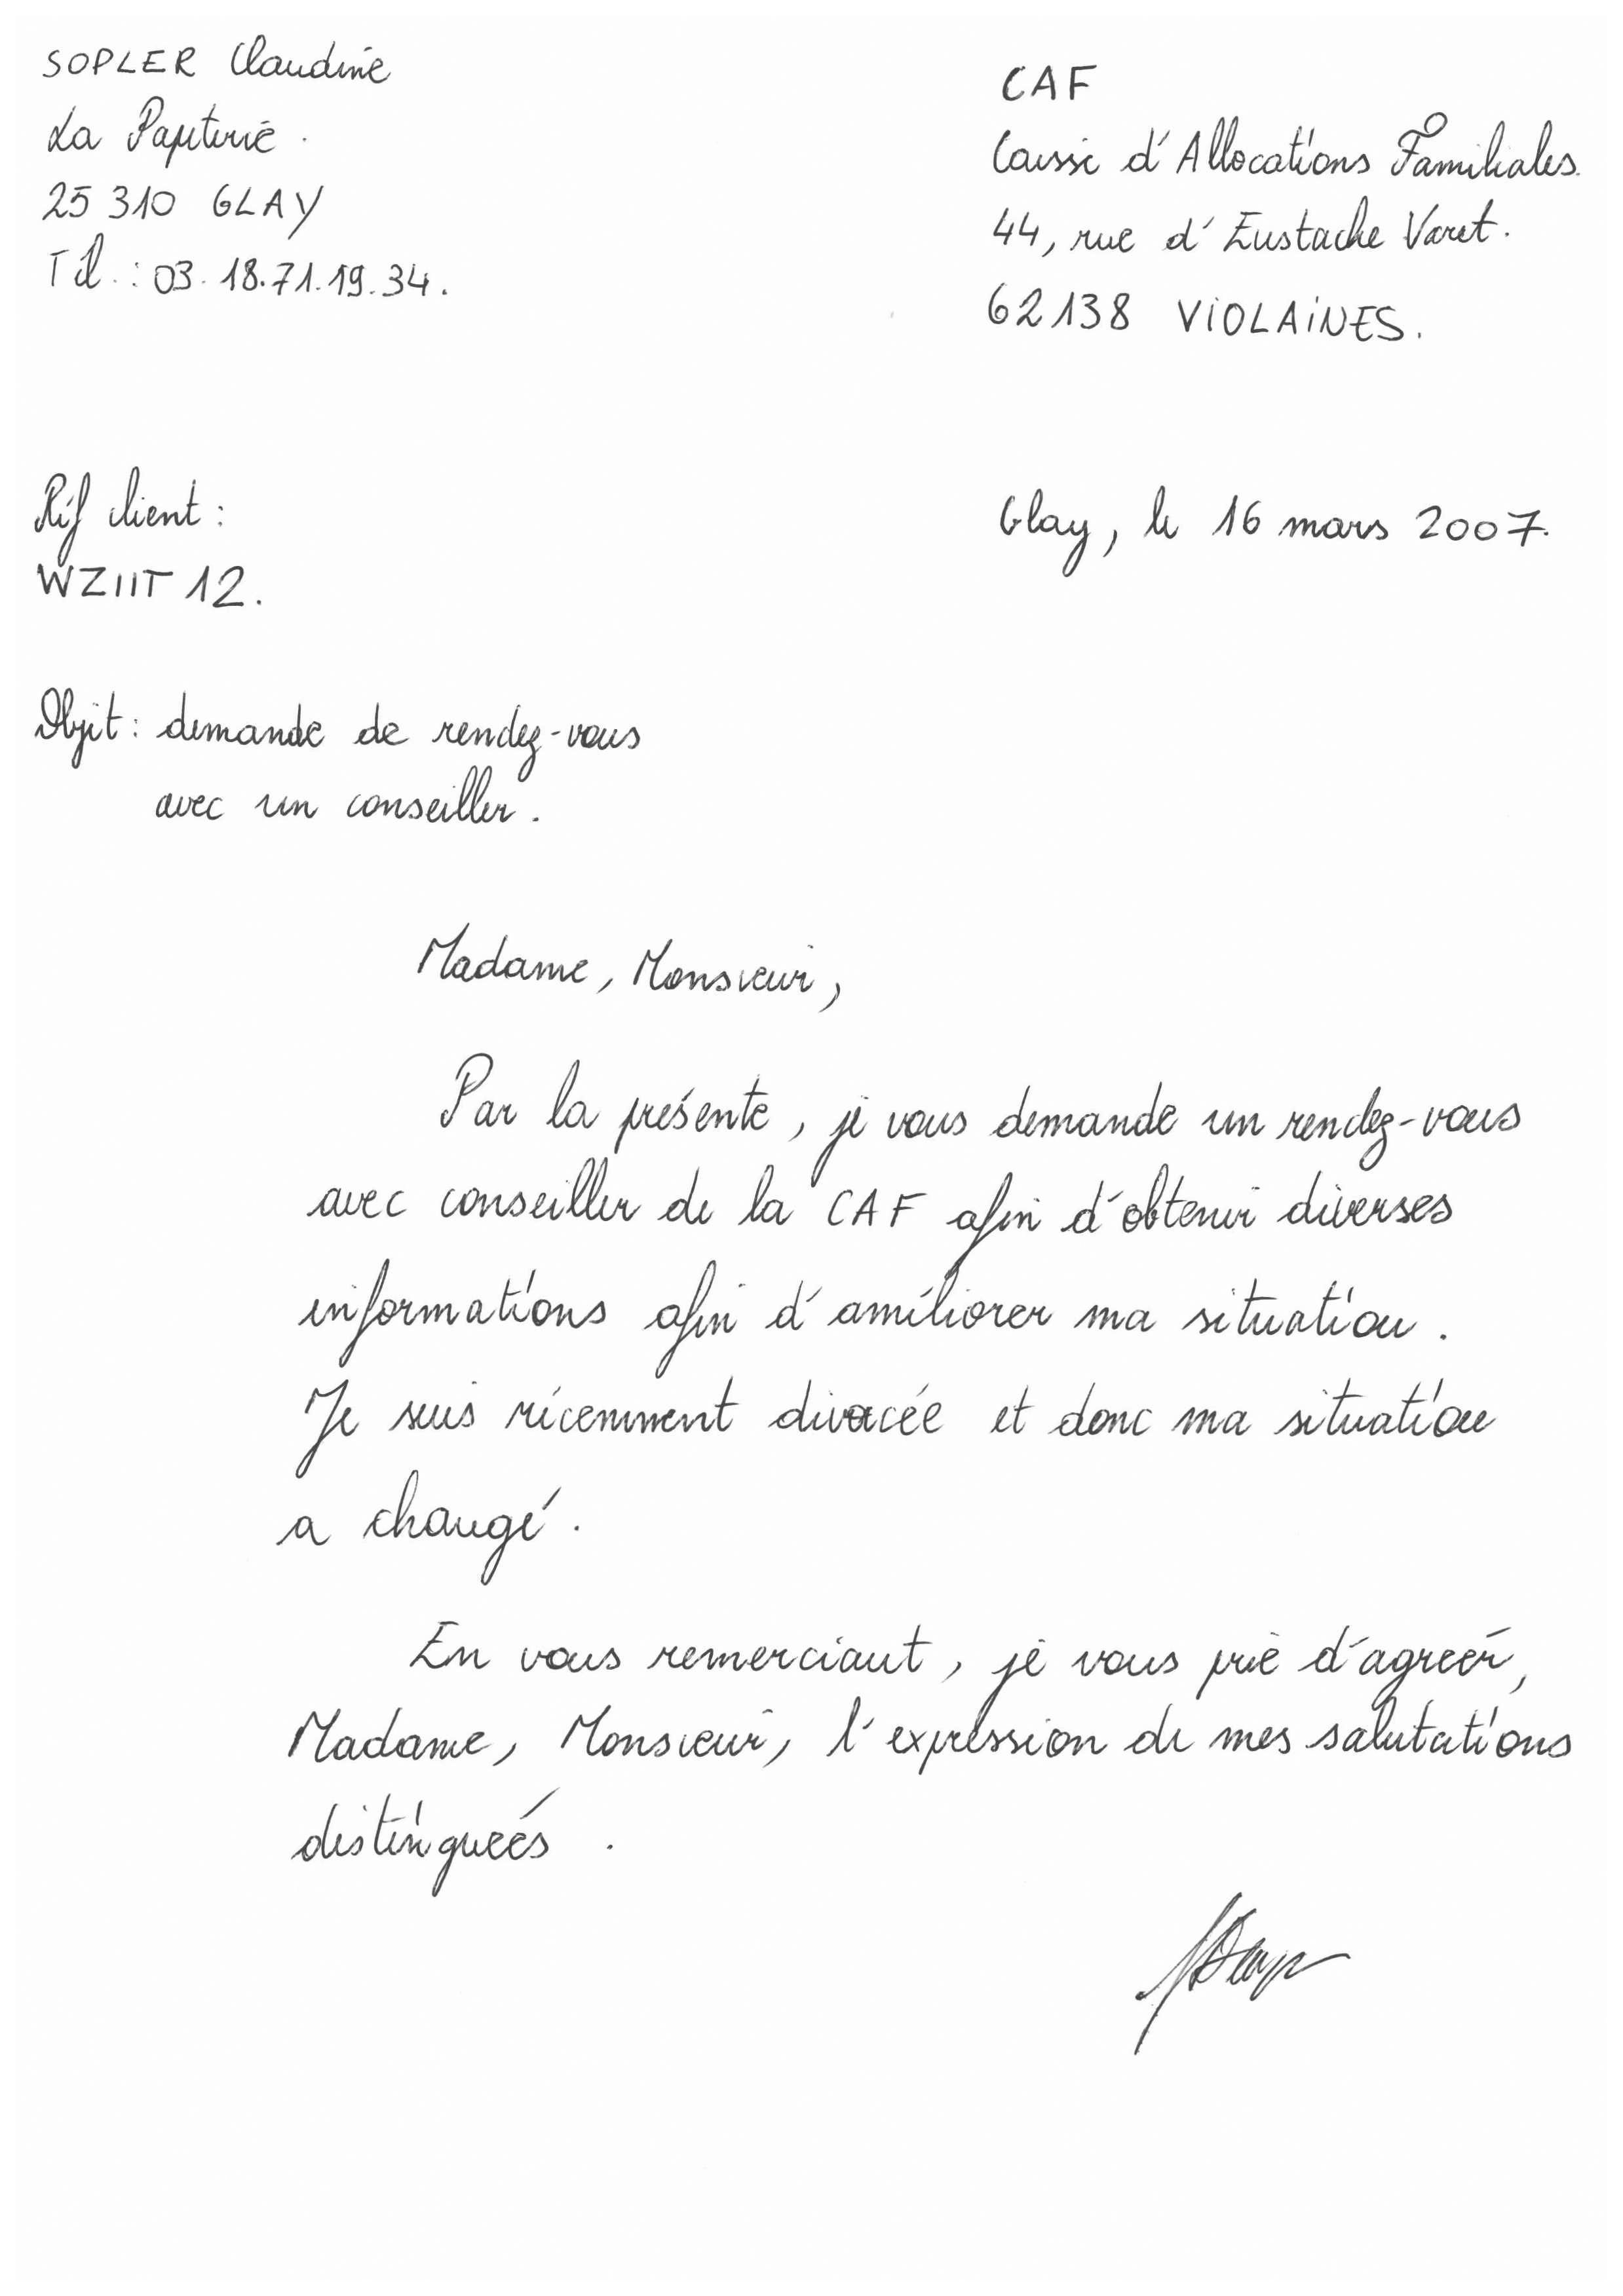 SOPLER Claudine
La Papeterie.
25 310 GLAY
Tél.: 03.18.71.19.34.
CAF
Caisse d'Allocations Familiales.
44, rue d'Eustache Varet.
62138 VIOLAINES.
Réf client:
WZIIT 12.
Glay, le 16 mars 2007.
Objet: demande de rendez-vous
avec un conseiller.
Madame, Monsieur,
Par la présente, je vous demande un rendez-vous
avec conseiller de la CAF afin d'obtenir diverses
informations afin d'améliorer ma situation.
Je suis récemment divorcée et donc ma situation
a changé.
En vous remerciant, je vous prie d'agréer,
Madame, Monsieur, l'expression de mes salutations
distinguées.